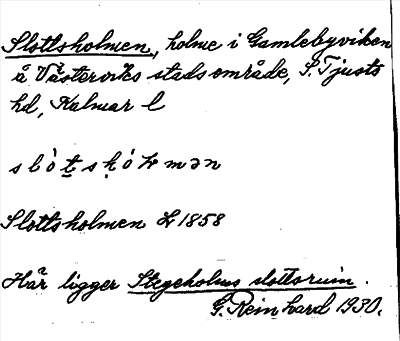 Slottsholmen, holme i Gamlebyviken
å Västerviks stadsområde, S. Tjusts
hd, Kalmar l
Slottsholmen Lr 1858
Här ligger Stegeholms slottsruin.
G. Reinhard 1930.